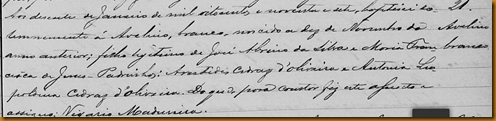 Aos dezesete de Janeiro de mil oitocentos e noventa e sete, baptisei so- 21
lemnemente á Avelino, branco, nascido a dez de Novembro do Avelino
anno anterior; filho legitimo de José Abreu da Silva e Maria Fran branco
cisca de Jesus. Padrinhos: Cidray d'Oliveira e Antonia Leo
poldina Cidray d'Oliveira. Do que para constar fiz este assento e
assigno. Vigario Madureira.